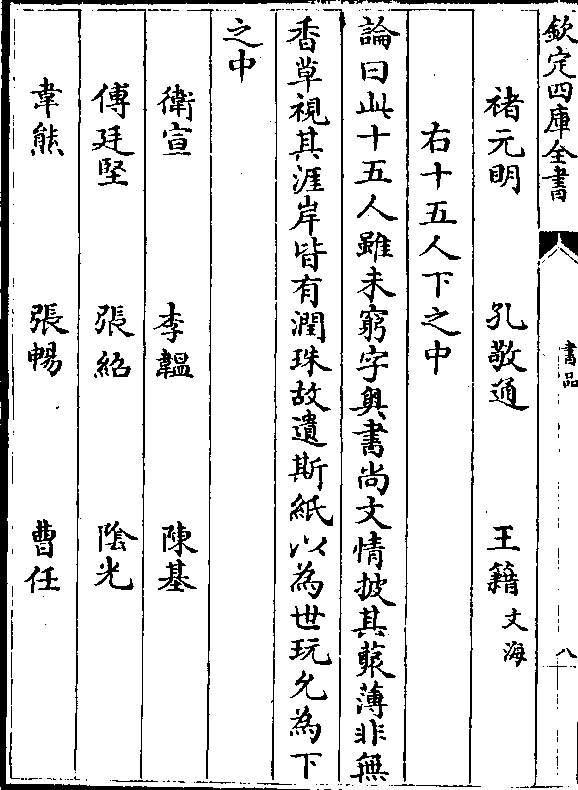 欽定四庫全書
書品
八
褚元明 孔敬通 王籍文海
右十五人下之中
論曰此十五人雖未窮字奥書尚文情披其䕺薄非無
香草視其涯岸皆有潤珠故遺斯紙以為世玩允為下
之中
衛宣 李韞 陳基
傅廷堅 張紹 陰光
韋熊 張暢 曹任